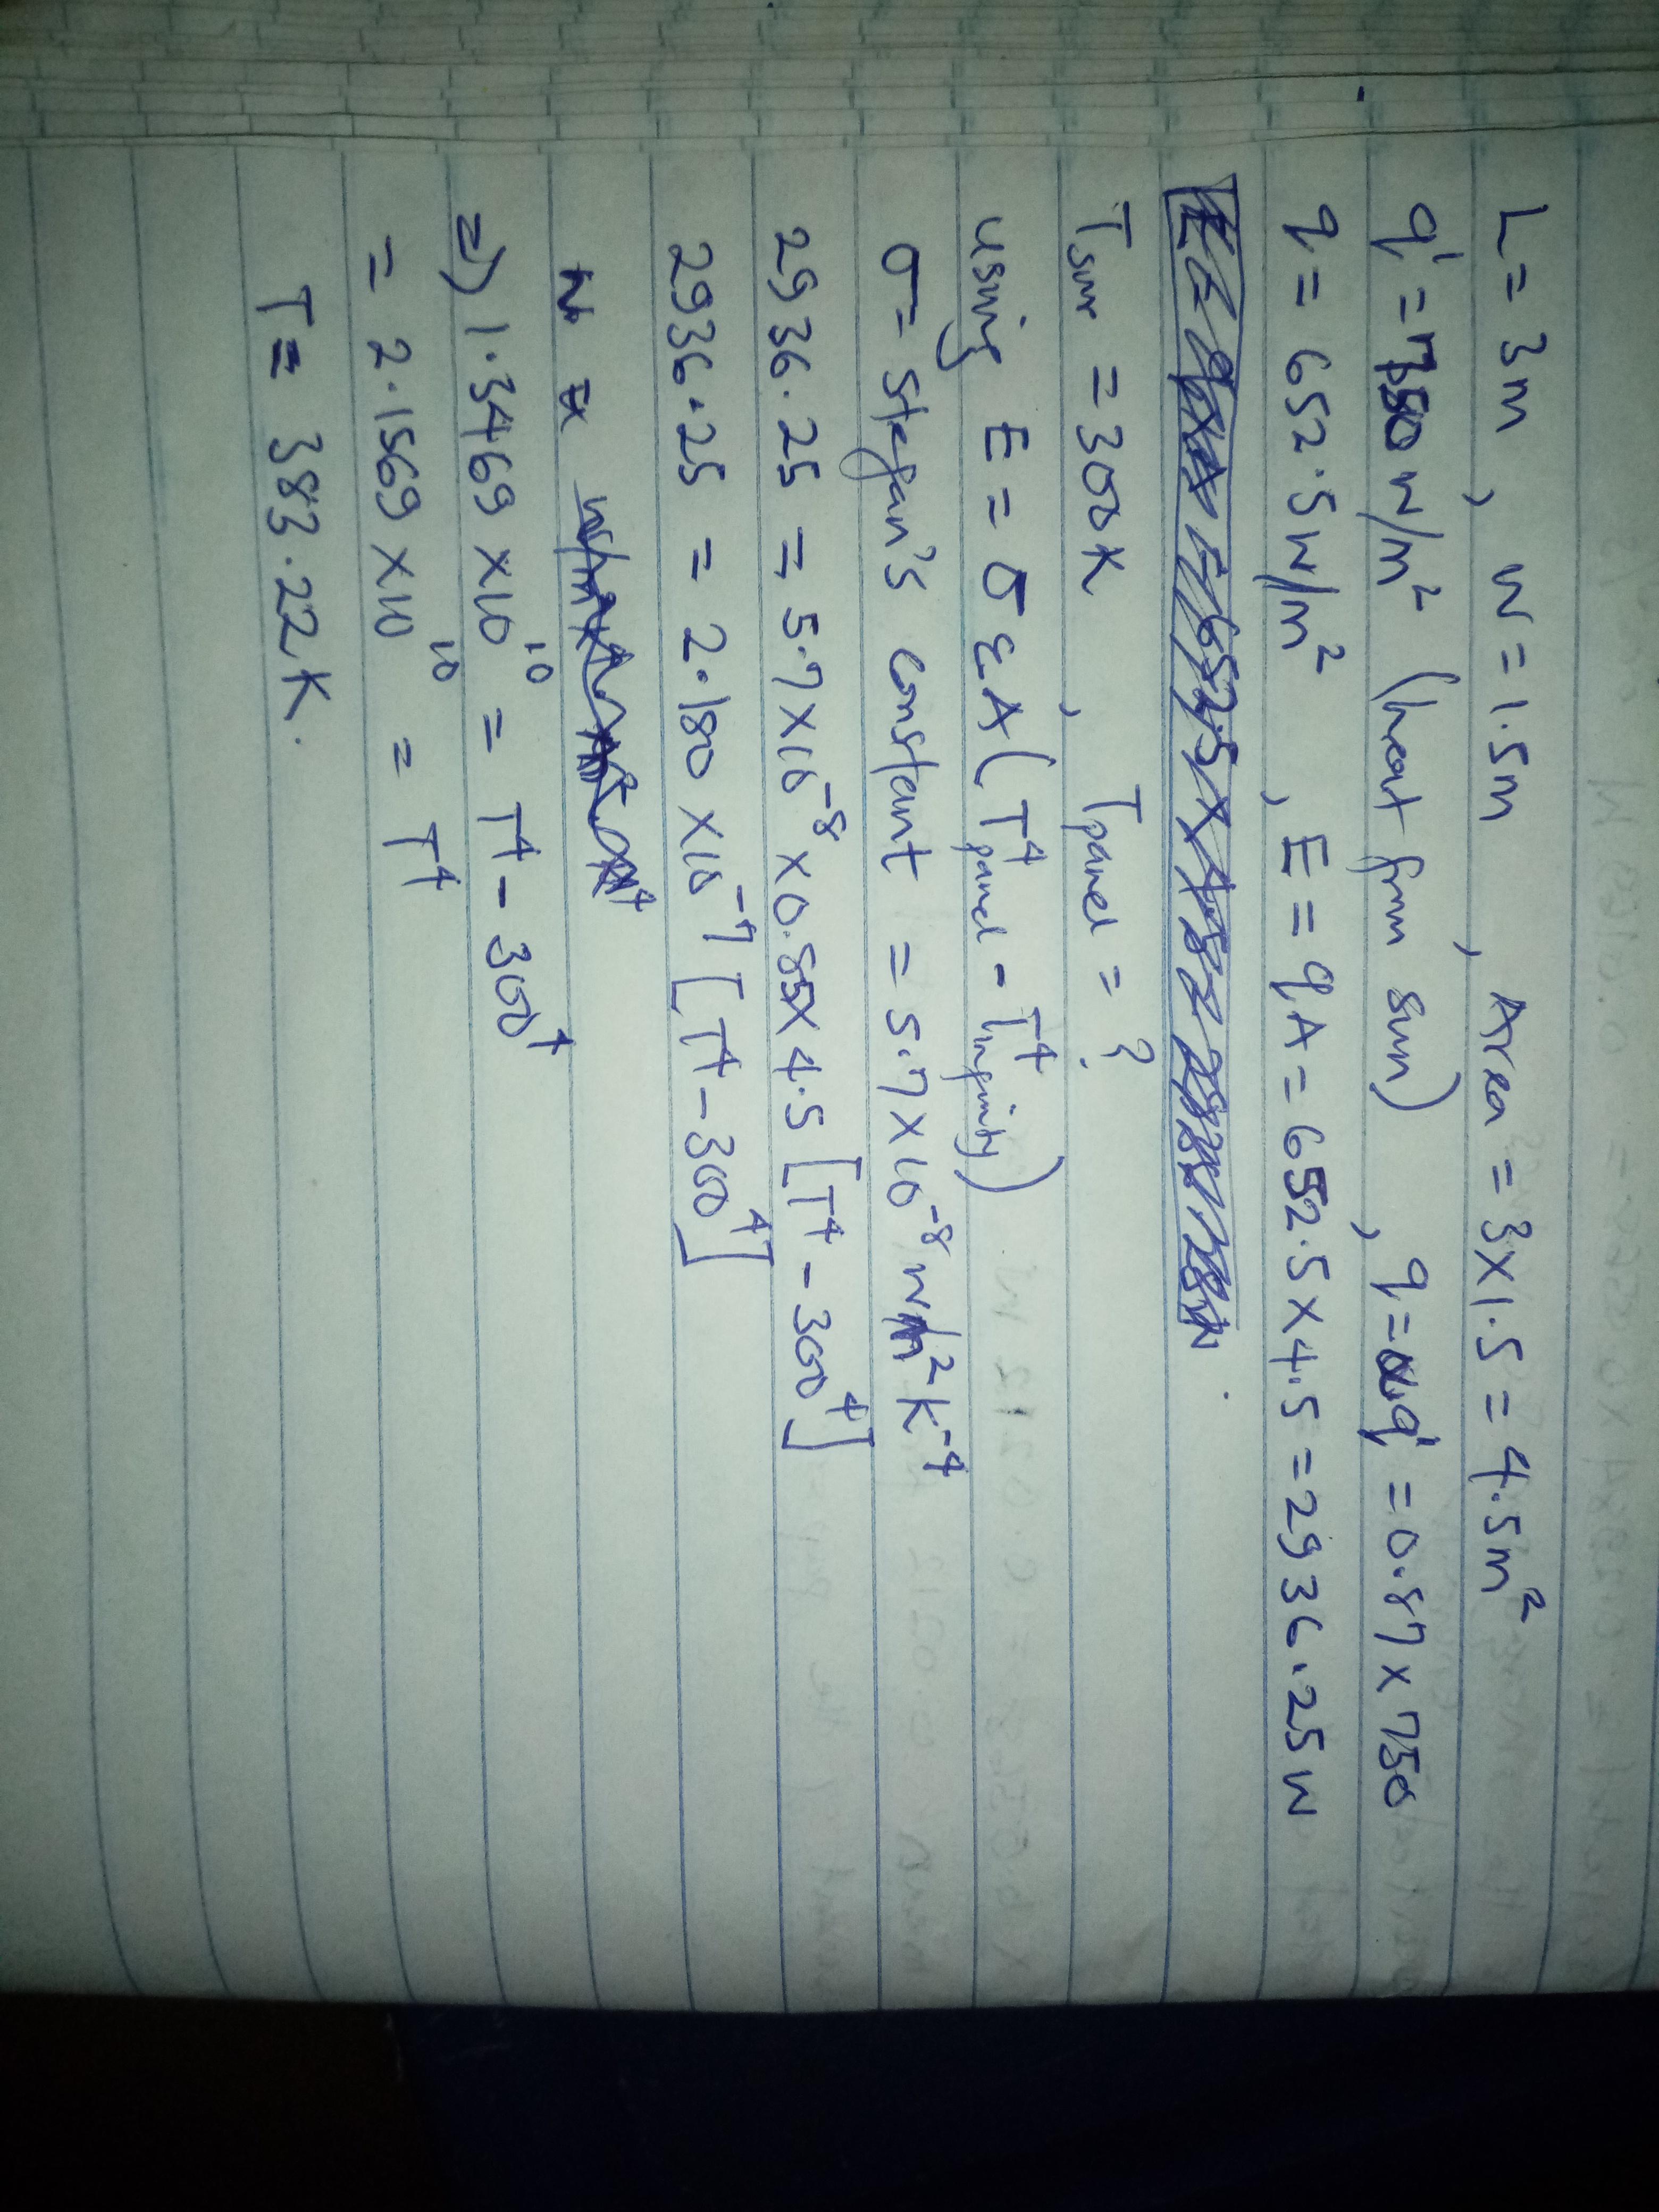 L = 3m , W = 1.5m , Area = 3x1.5 = 4.5m²
q' = 750 W/m² (heat from sun) , q = αq' = 0.87 x 750
q = 652.5 W/m² , E = qA = 652.5 x 4.5 = 2936.25W
Tsurr = 300K , Tpanel = ?
using E = σεA(T⁴panel - T⁴infinity)
σ = stefan's constant = 5.7x10⁻⁸ W/m²K⁻⁴
2936.25 = 5.7x10⁻⁸ x 0.85x 4.5 [T⁴ - 300⁴]
2936.25 = 2.180 x10⁻⁷ [T⁴ - 300⁴]
=) 1.3469 x10¹⁰ = T⁴ - 300⁴
= 2.1569 x10¹⁰ = T⁴
T = 383.22K.